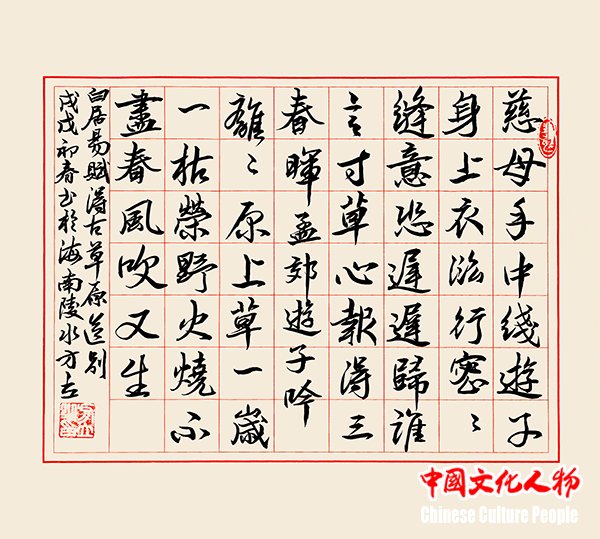 慈母手中綫遊子
身上衣臨行密〻
縫意恐遲遲歸誰
言寸草心報得三
春暉孟郊遊子吟
離〻原上草一歲
一枯榮野火燒不
盡春風吹又生
白居易賦得古草原送别
戊戌初春书於海南陵水
中國文化人物
Chinese Culture People